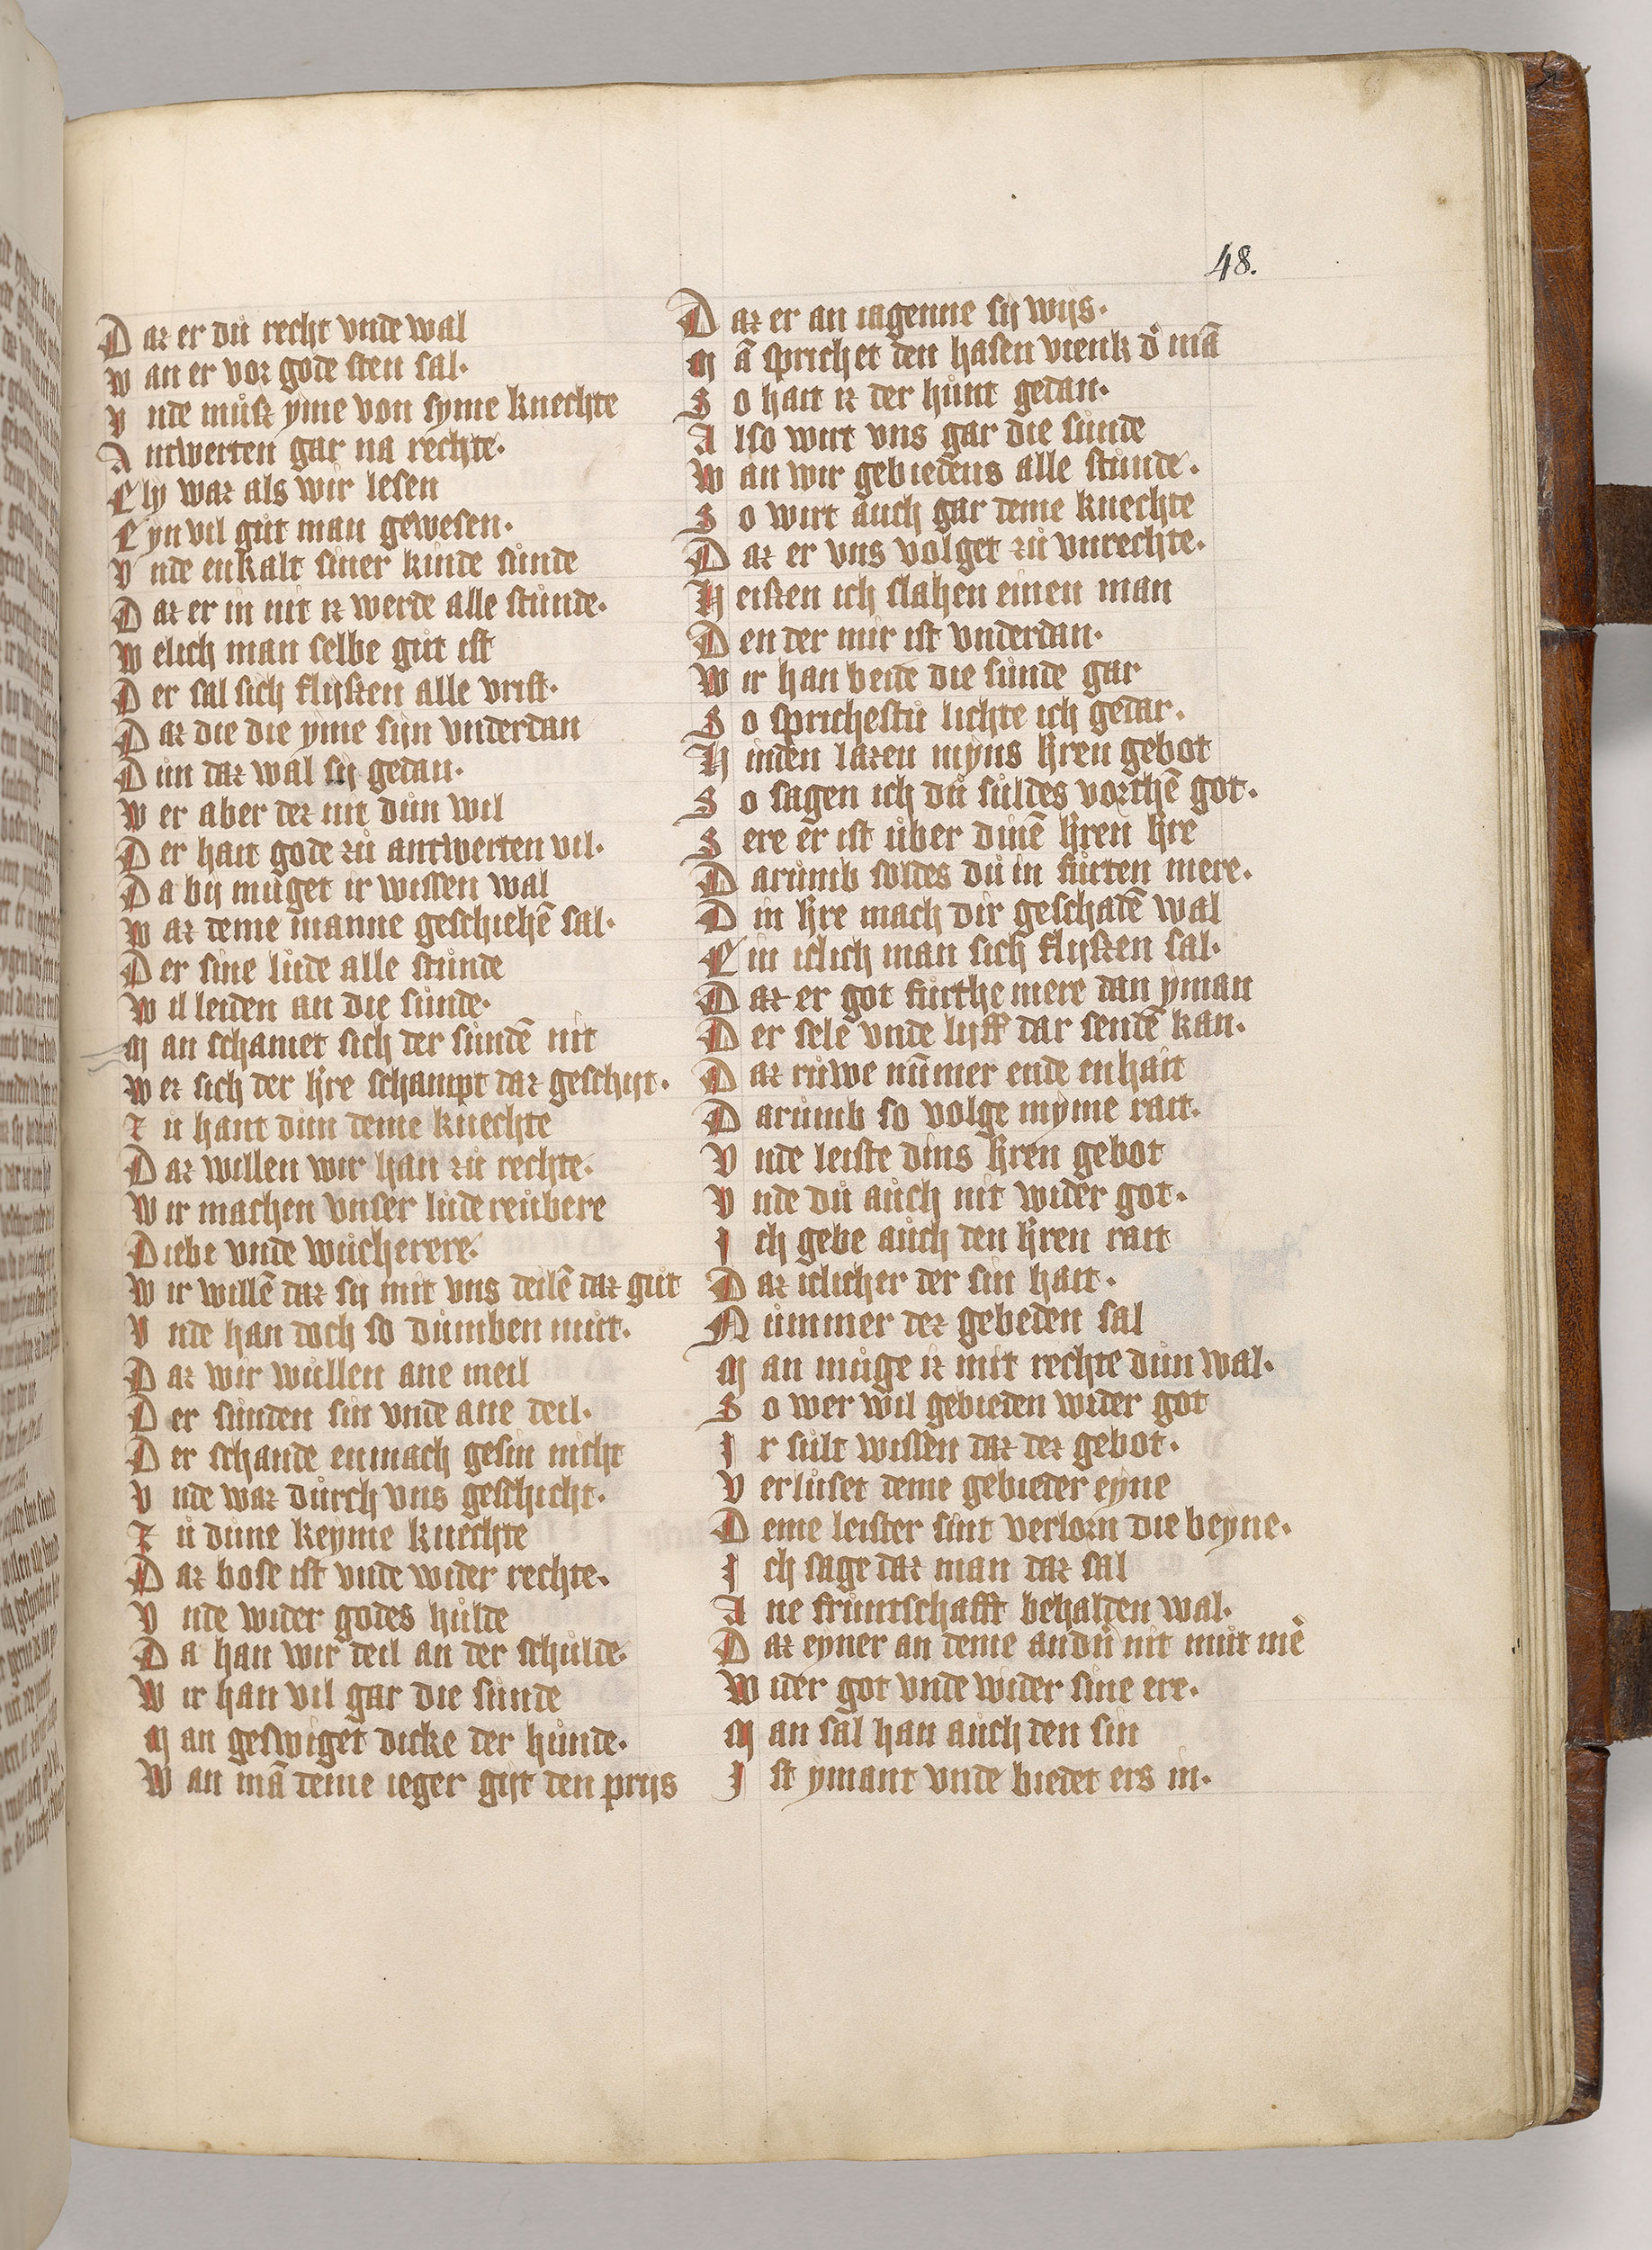 48.
Daz er dů recht vnde wal
wan er vor gode sten sal·
vnde můsz yme von syme knechte
Antwerten gar na rechte·
Ely waz als wir lesen
Eyn vil gůt man gewesen·
Vnde enkalt siner kinde sůnde
Daz er in nit iz werde alle stůnde·
Welich man selbe gůt ist
Der sal sich flijszen alle vrist·
Daz die die yme sijn vnderdan
Důn daz wal sij gedan·
Wer aber dez nit důn wil
Der hait gode zů antwerten vil·
Da bij můget ir wissen wal
waz deme manne geschiehē sal·
Der sine lůde alle stůnde
Wil leiden an die sůnde·
Man schamet sich der sůndē nit
Wez sich der h̄re schampt daz geschijt·
Zů hant důn deme knechte
Daz willen wir han zů rechte·
Wir machen vnser lůde reůbere
Diebe vnde wůcherere·
Wir willē daz sij mit vns deilē daz gůt
Vnde han doch so důmben můt·
Daz wir wůllen ane meil
Der sůnden sin vnde ane deil·
Der schande enmach gesin nicht
Vnde waz důrch vns geschicht·
Zů důne keyme knechte
Daz bose ist vnde wider rechte·
Vnde wider godes hůlde
Da han wir deil an der schůlde·
Wir han vil gar die sůnde
Man geswiget dicke der hůnde·
Wan mā deme ieger gijt den prijs
Daz er an iagenne sij wijs·
Mā sprichet den hasen vienk d' mā
So hait iz der hůnt gedan·
Also wirt vns gar die sůnde
Wan wir gebiedens alle stůnde·
So wirt aůch gar deme knechte
Daz er vns volget zů vnrechte·
Heiszen ich slahen einen man
Den der mir ist vnderdan·
Wir han beide die sůnde gar
So sprichestů lichte ich gedar·
Hinden lazen myns h̄ren gebot
So sagen ich dů sůldes vorthē got·
Sere er ist ůber dinē h̄ren h̄re
Darůmb soldes dů in fůrten mere·
Din h̄re mach dir geschadē wal
Ein iclich man sich flijszen sal·
Daz er got fůrthe mere dan yman
Der sele vnde lijff dar sendē kan·
Daz růwe nům̄er ende enhait
Darůmb so volge myme rait·
Vnde leiste dins h̄ren gebot
Vnde dů aůch nit wider got·
Ich gebe aůch den h̄ren rait
Daz iclicher der sin hait·
Nůmmer dez gebeden sal
Man můge iz mit rechte důn wal·
So wer wil gebieden wider got
Ir sůlt wissen daz dez gebot·
Verlůset deme gebieder eyne
Deme leister sint verlorn die beyne·
Ich sage daz man daz sal
Ane frůntschafft behalden wal·
Daz eyner an deme andn̄ nit můt me
Wider got vnde wider sine ere·
Man sal han aůch den sin
Ist ymant vnde biedet ers in·